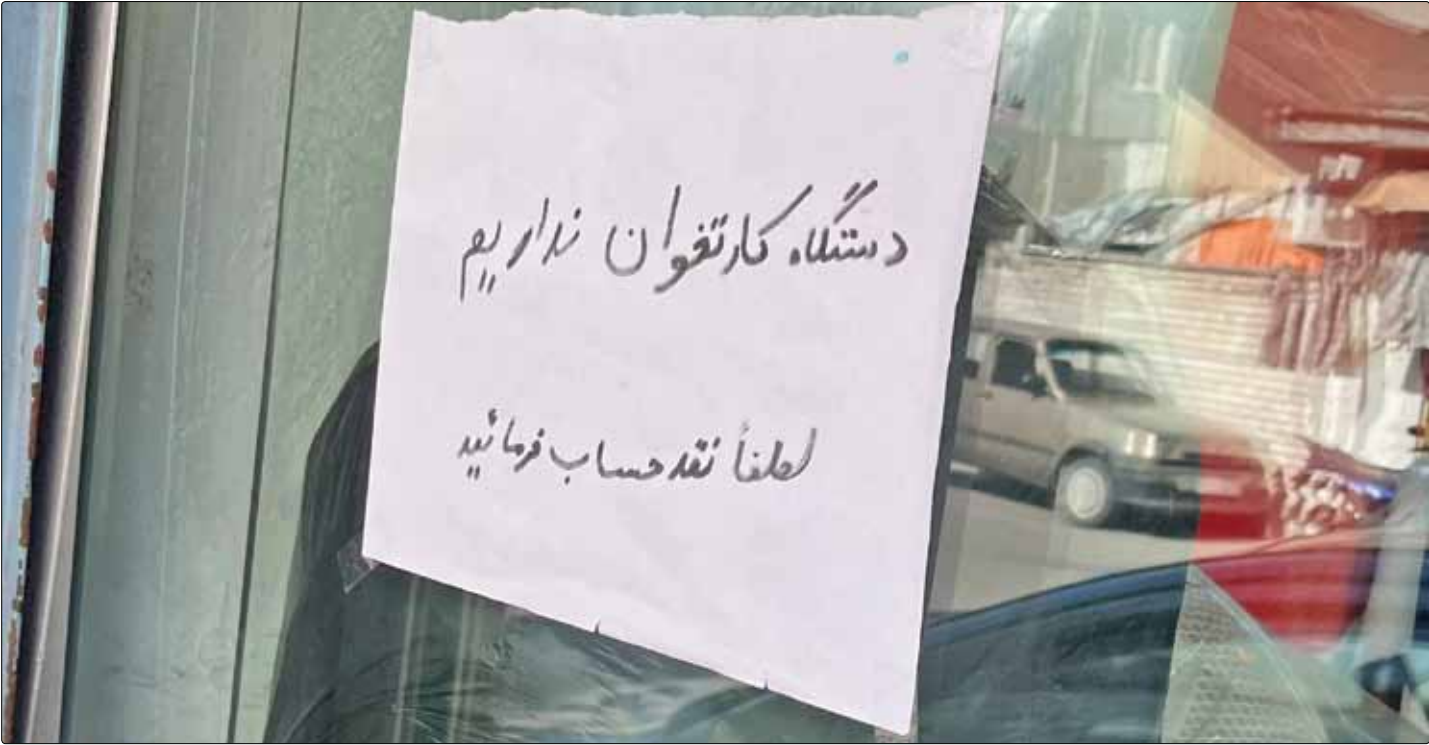 دستگاه کارتخوان نداریم
لطفاً نقد حساب فرمائید